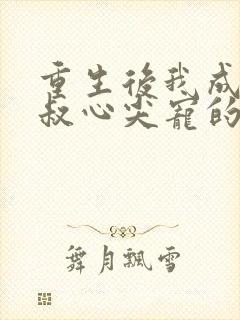 重生後我成
叔心尖寵的
舞月飄雪